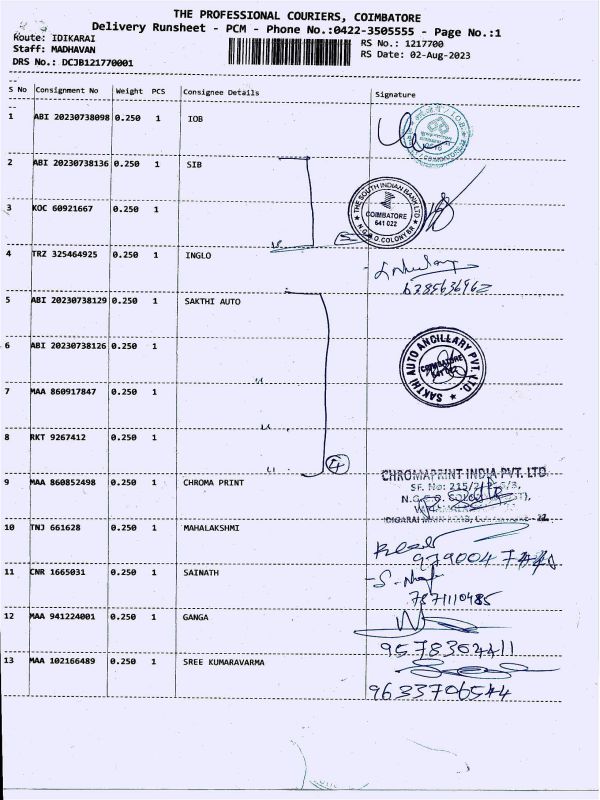 THE PROFESSIONAL COURIERS, COIMBATORE
Delivery Runsheet - PCM - Phone No.:0422-3505555 - Page No.:1
Route: IDIKARAI
RS No.: 1217700
Staff: MADHAVAN
RS Date: 02-Aug-2023
DRS No.: DCJB121770001
S No Consignment No Weight PCS Consignee Details Signature
1 ABI 20230738098 0.250 1 IOB
2 ABI 20230738136 0.250 1 SIB
THE SOUTH INDIAN BANK LTD
COIMBATORE
641 022
N.G.G.O. COLONY BR
3 KOC 60921667 0.250 1
4 TRZ 325464925 0.250 1 INGLO
6385636962
5 ABI 20230738129 0.250 1 SAKTHI AUTO
6 ABI 20230738126 0.250 1
SAKTHI AUTO ANCILLARY PVT. LTD.
COIMBATORE
7 MAA 860917847 0.250 1
8 RKT 9267412 0.250 1
4
9 MAA 860852498 0.250 1 CHROMA PRINT
CHROMAPRINT INDIA PVT. LTD
SF. No: 215/2
10 TNJ 661628 0.250 1 MAHALAKSHMI
979004
11 CNR 1665031 0.250 1 SAINATH
7871110485
12 MAA 941224001 0.250 1 GANGA
9578304411
13 MAA 102166489 0.250 1 SREE KUMARAVARMA
9633706544